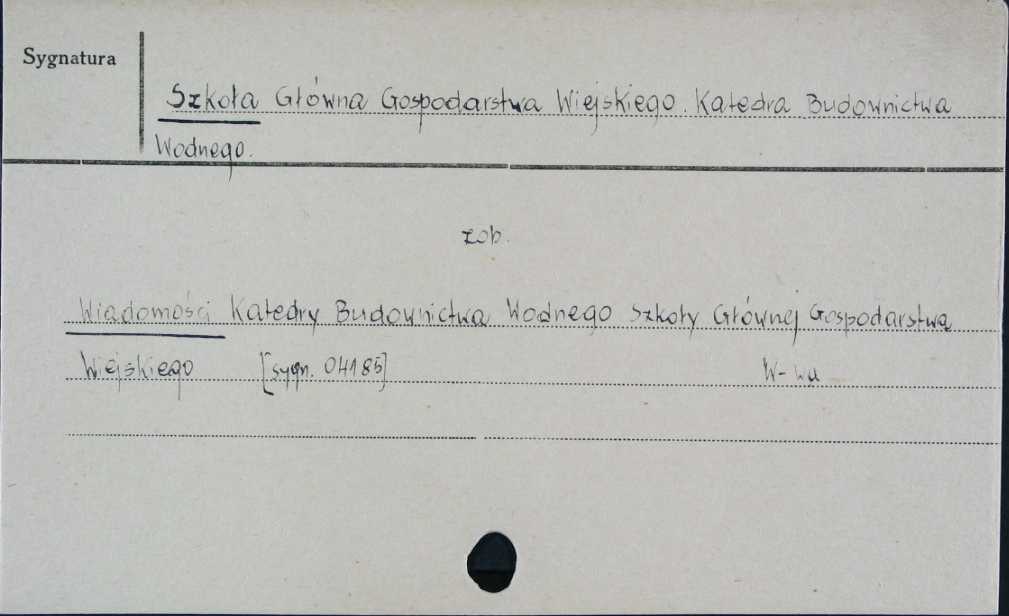 Sygnatura
Szkoła Główna Gospodarstwa Wiejskiego. Katedra Budownictwa
Wodnego.
zob.
Wiadomości Katedry Budownictwa Wodnego Szkoły Głównej Gospodarstwa
Wiejskiego [sygn. 04185] W-wa